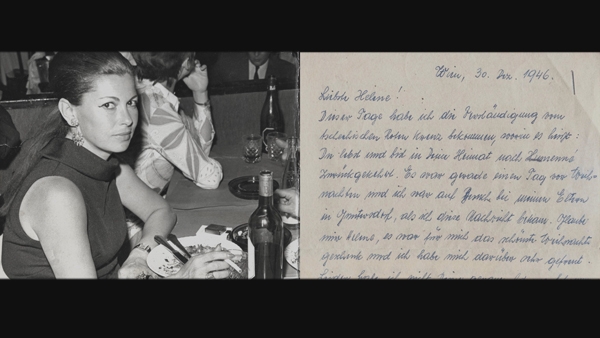 Wien, 30. Dez. 1946.
Liebste Helene!
Dieser Tage habe ich die Verständigung vom
tschechischen Roten Kreuz bekommen, worin es heißt:
Du lebst und bist in Deine Heimat nach Humenné
zurückgekehrt. Es war gerade einen Tag vor Weih-
nachten und ich war auf Besuch bei meinen Eltern
in Guntersdorf, als ich diese Nachricht bekam. Glaube
mir Helene, es war für mich das schönste Weihnachts-
geschenk und ich habe mich darüber sehr gefreut.